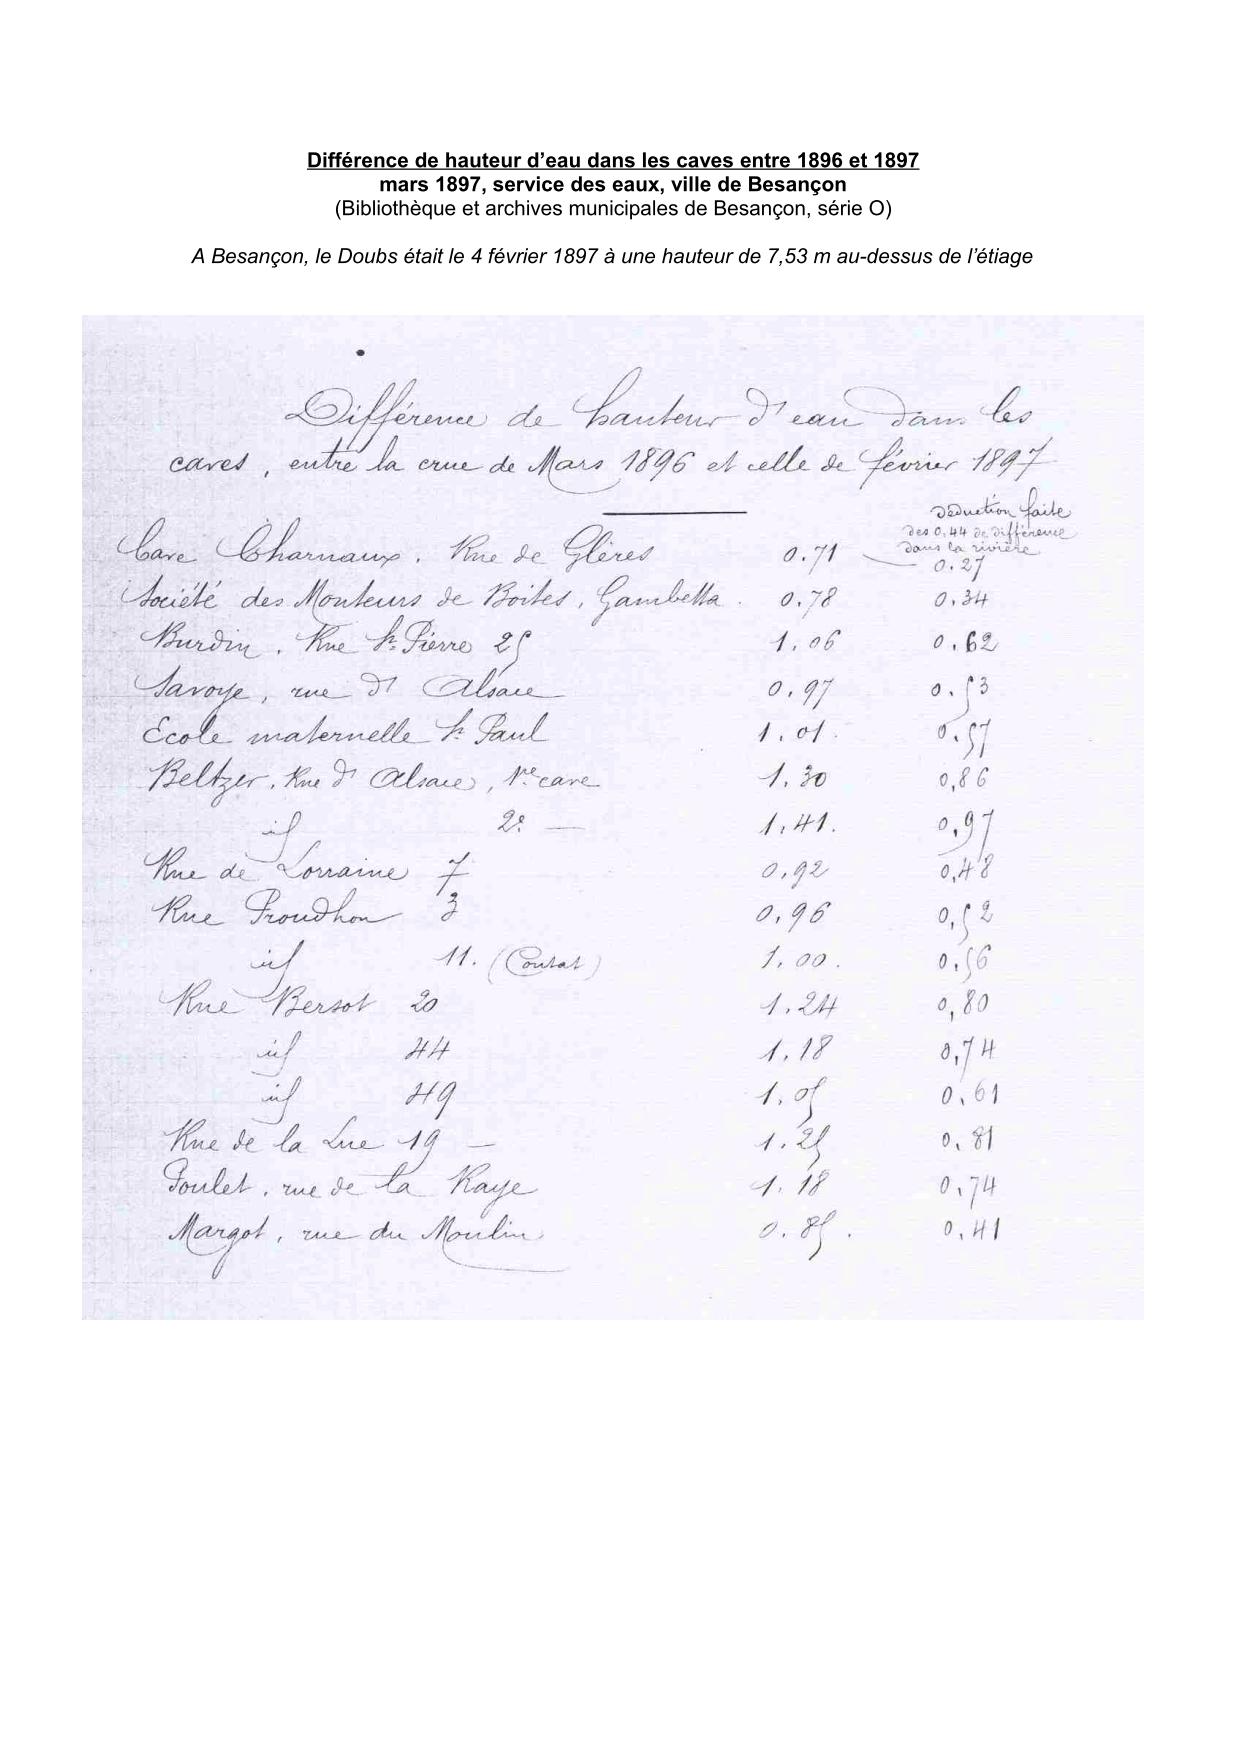 Différence de hauteur d'eau dans les caves entre 1896 et 1897
mars 1897, service des eaux, ville de Besançon
(Bibliothèque et archives municipales de Besançon, série O)
A Besançon, le Doubs était le 4 février 1897 à une hauteur de 7,53 m au-dessus de l'étiage
Différence de hauteur d'eau dans les
caves, entre la crue de Mars 1896 et celle de février 1897
Déduction faite
des 0,44 de différence
dans la rivière
Cave Charnaux. Rue de Glères 0.71 0.27
Société des Monteurs de Boites, Gambetta. 0.78 0.34
Burdin, Rue St Pierre 25 1.06 0.62
Savoye, rue d'Alsace 0.97 0.53
Ecole maternelle St Paul 1.01. 0.57
Beltzer, Rue d'Alsace, 1re cave 1.30 0,86
id 2e — 1,41. 0,97
Rue de Lorraine 7 0,92 0,48
Rue Proudhon 3 0,96 0,52
id 11. (Coutat) 1,00. 0,56
Rue Bersot 20 1.24 0,80
id 44 1.18 0,74
id 49 1.05 0,61
Rue de la Lue 19 — 1.25 0,81
Poulet, rue de la Raye 1.18 0,74
Margot, rue du Moulin 0.85. 0,41